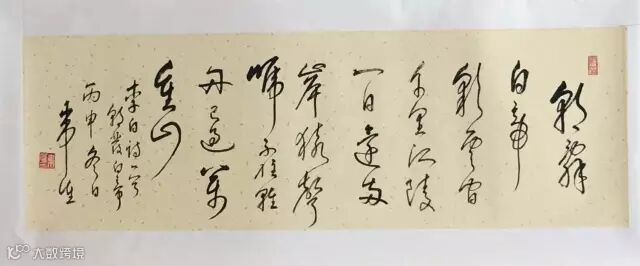 朝辞
白帝
彩雲间
千里江陵
一日還两
岸猿聲
啼不住轻
舟已過万
重山
李白诗一首
朝發白帝
丙申冬日
大数跨境